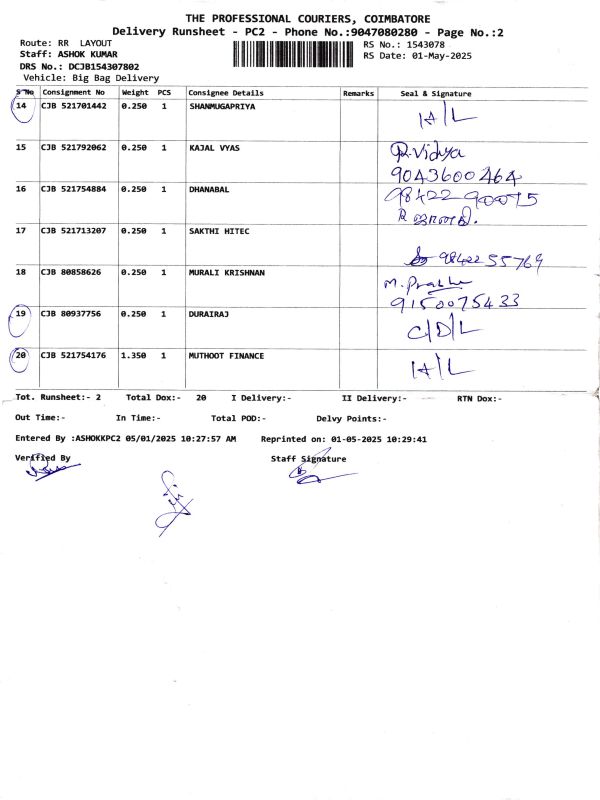 THE PROFESSIONAL COURIERS, COIMBATORE
Delivery Runsheet - PC2 - Phone No.:9047080280 - Page No.:2
Route: RR LAYOUT
RS No.: 1543078
Staff: ASHOK KUMAR
RS Date: 01-May-2025
DRS No.: DCJB154307802
Vehicle: Big Bag Delivery
S No Consignment No Weight PCS Consignee Details Remarks Seal & Signature
14 CJB 521701442 0.250 1 SHANMUGAPRIYA
H/L
15 CJB 521792062 0.250 1 KAJAL VYAS R.Vidya
9043600464
16 CJB 521754884 0.250 1 DHANABAL 98422 90075
R
17 CJB 521713207 0.250 1 SAKTHI HITEC
9842255769
18 CJB 80858626 0.250 1 MURALI KRISHNAN
M. Prabhu
9150075433
19 CJB 80937756 0.250 1 DURAIRAJ
C/D/L
20 CJB 521754176 1.350 1 MUTHOOT FINANCE
H/L
Tot. Runsheet:- 2 Total Dox:- 20 I Delivery:- II Delivery:- RTN Dox:-
Out Time:- In Time:- Total POD:- Delvy Points:-
Entered By :ASHOKKPC2 05/01/2025 10:27:57 AM Reprinted on: 01-05-2025 10:29:41
Verified By Staff Signature